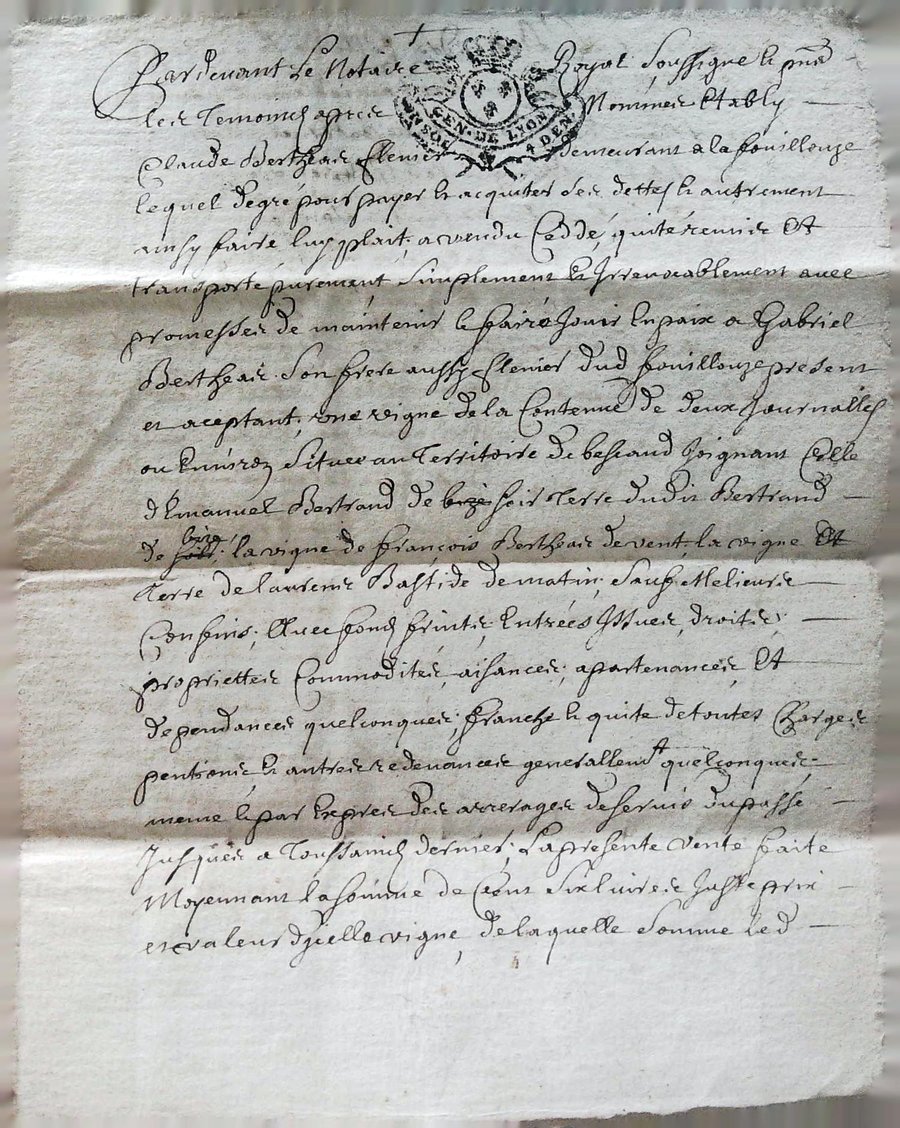 Pardevant Le Notaire Royal Soussigné et pnt
les Temoins apres Nommes Etably
GEN. DE LYON
4 DEN.
Claude Bertheas demeurant a la fouillouze
lequel degré pour payer et acquiter ses dettes et autrement
ainsy faire luy plait, a vendu Ceddé, quité remis Et
transporté purement, Simplement et Irrevocablement avec
promesses de maintenir et faire Jouir En paix a Gabriel
Bertheas Son frere aussy dud fouillouze present
et aceptant, une vigne de la Contenue de deux Journalles
ou Environ Situee au Territoire de bessand Joignant Celle
d'Emanuel Bertrand de bize soir Terre dudit Bertrand
de soir bize, la vigne de françois Bertheas de vent, la vigne Et
Terre de laurens Bastide de matin, Sauf Melieurs
Confins, Avec fond, Entrées Issues, droits,
propriettes Commodités, aisances, apartenances, Et
dependances quelconques, franche et quite de toutes Charges
pentions, et autres redevances generallemt quelconques,
meme et par Expres des arrerages de servis du passé
Jusques a Toussaincts dernier, La presente vente faite
Moyennant la somme de Cent Six livres Juste prix
et valeur d'icelle vigne, de laquelle Somme led